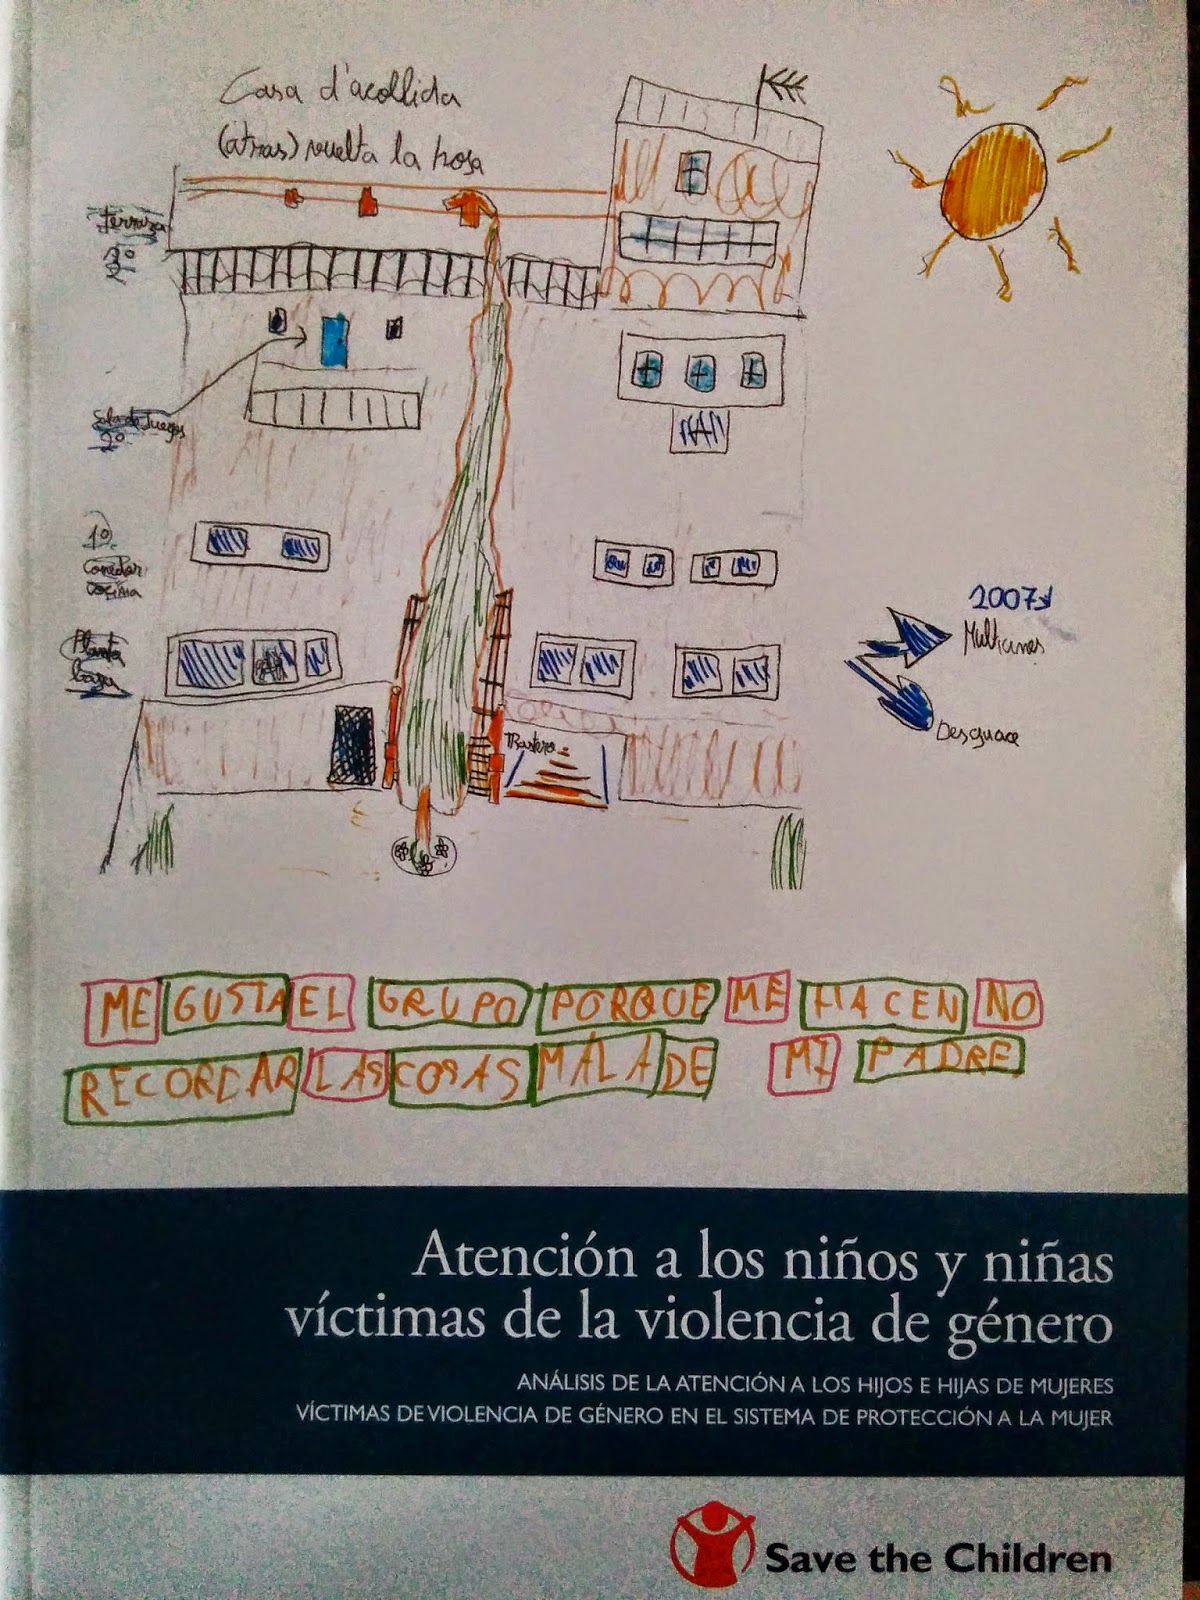 Casa d'acollida
(atras) vuelta la hosa
terraza
2º
Sala de Juegos
2º
1º
Comedor
cocina
Planta
baja
Trastero
2007
Multicines
Desguace
ME GUSTA EL GRUPO PORQUE ME HACEN NO
RECORDAR LAS COSAS MALA DE MI PADRE
Atención a los niños y niñas
víctimas de la violencia de género
ANÁLISIS DE LA ATENCIÓN A LOS HIJOS E HIJAS DE MUJERES
VÍCTIMAS DE VIOLENCIA DE GÉNERO EN EL SISTEMA DE PROTECCIÓN A LA MUJER
Save the Children